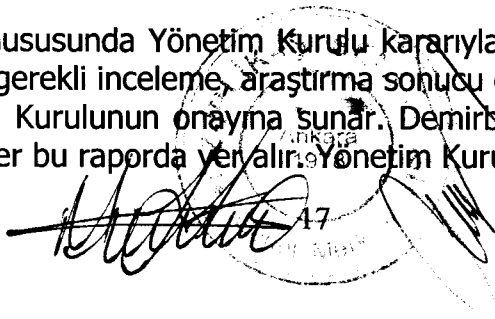 ususunda Yönetim Kurulu kararıyla
gerekli inceleme, araştırma sonucu
Kurulunun onayına sunar. Demirb
er bu raporda yer alır. Yönetim Kuru
17
Ankara